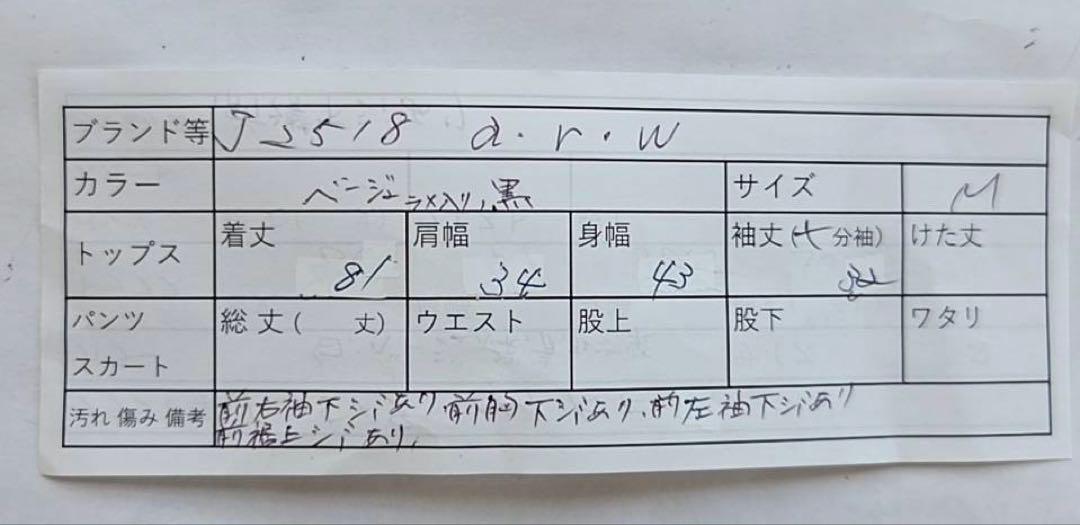 ブランド等 J2518 d.r.w
カラー ベージュラメ入り、黒 サイズ M
トップス 着丈 81 肩幅 34 身幅 43 袖丈(七分袖) けた丈
パンツ 総丈( 丈) ウエスト 股上 股下 ワタリ
スカート
汚れ 傷み 備考 前右袖下シミあり、前胸下シミあり、前左袖下シミあり
前裾上シミあり、